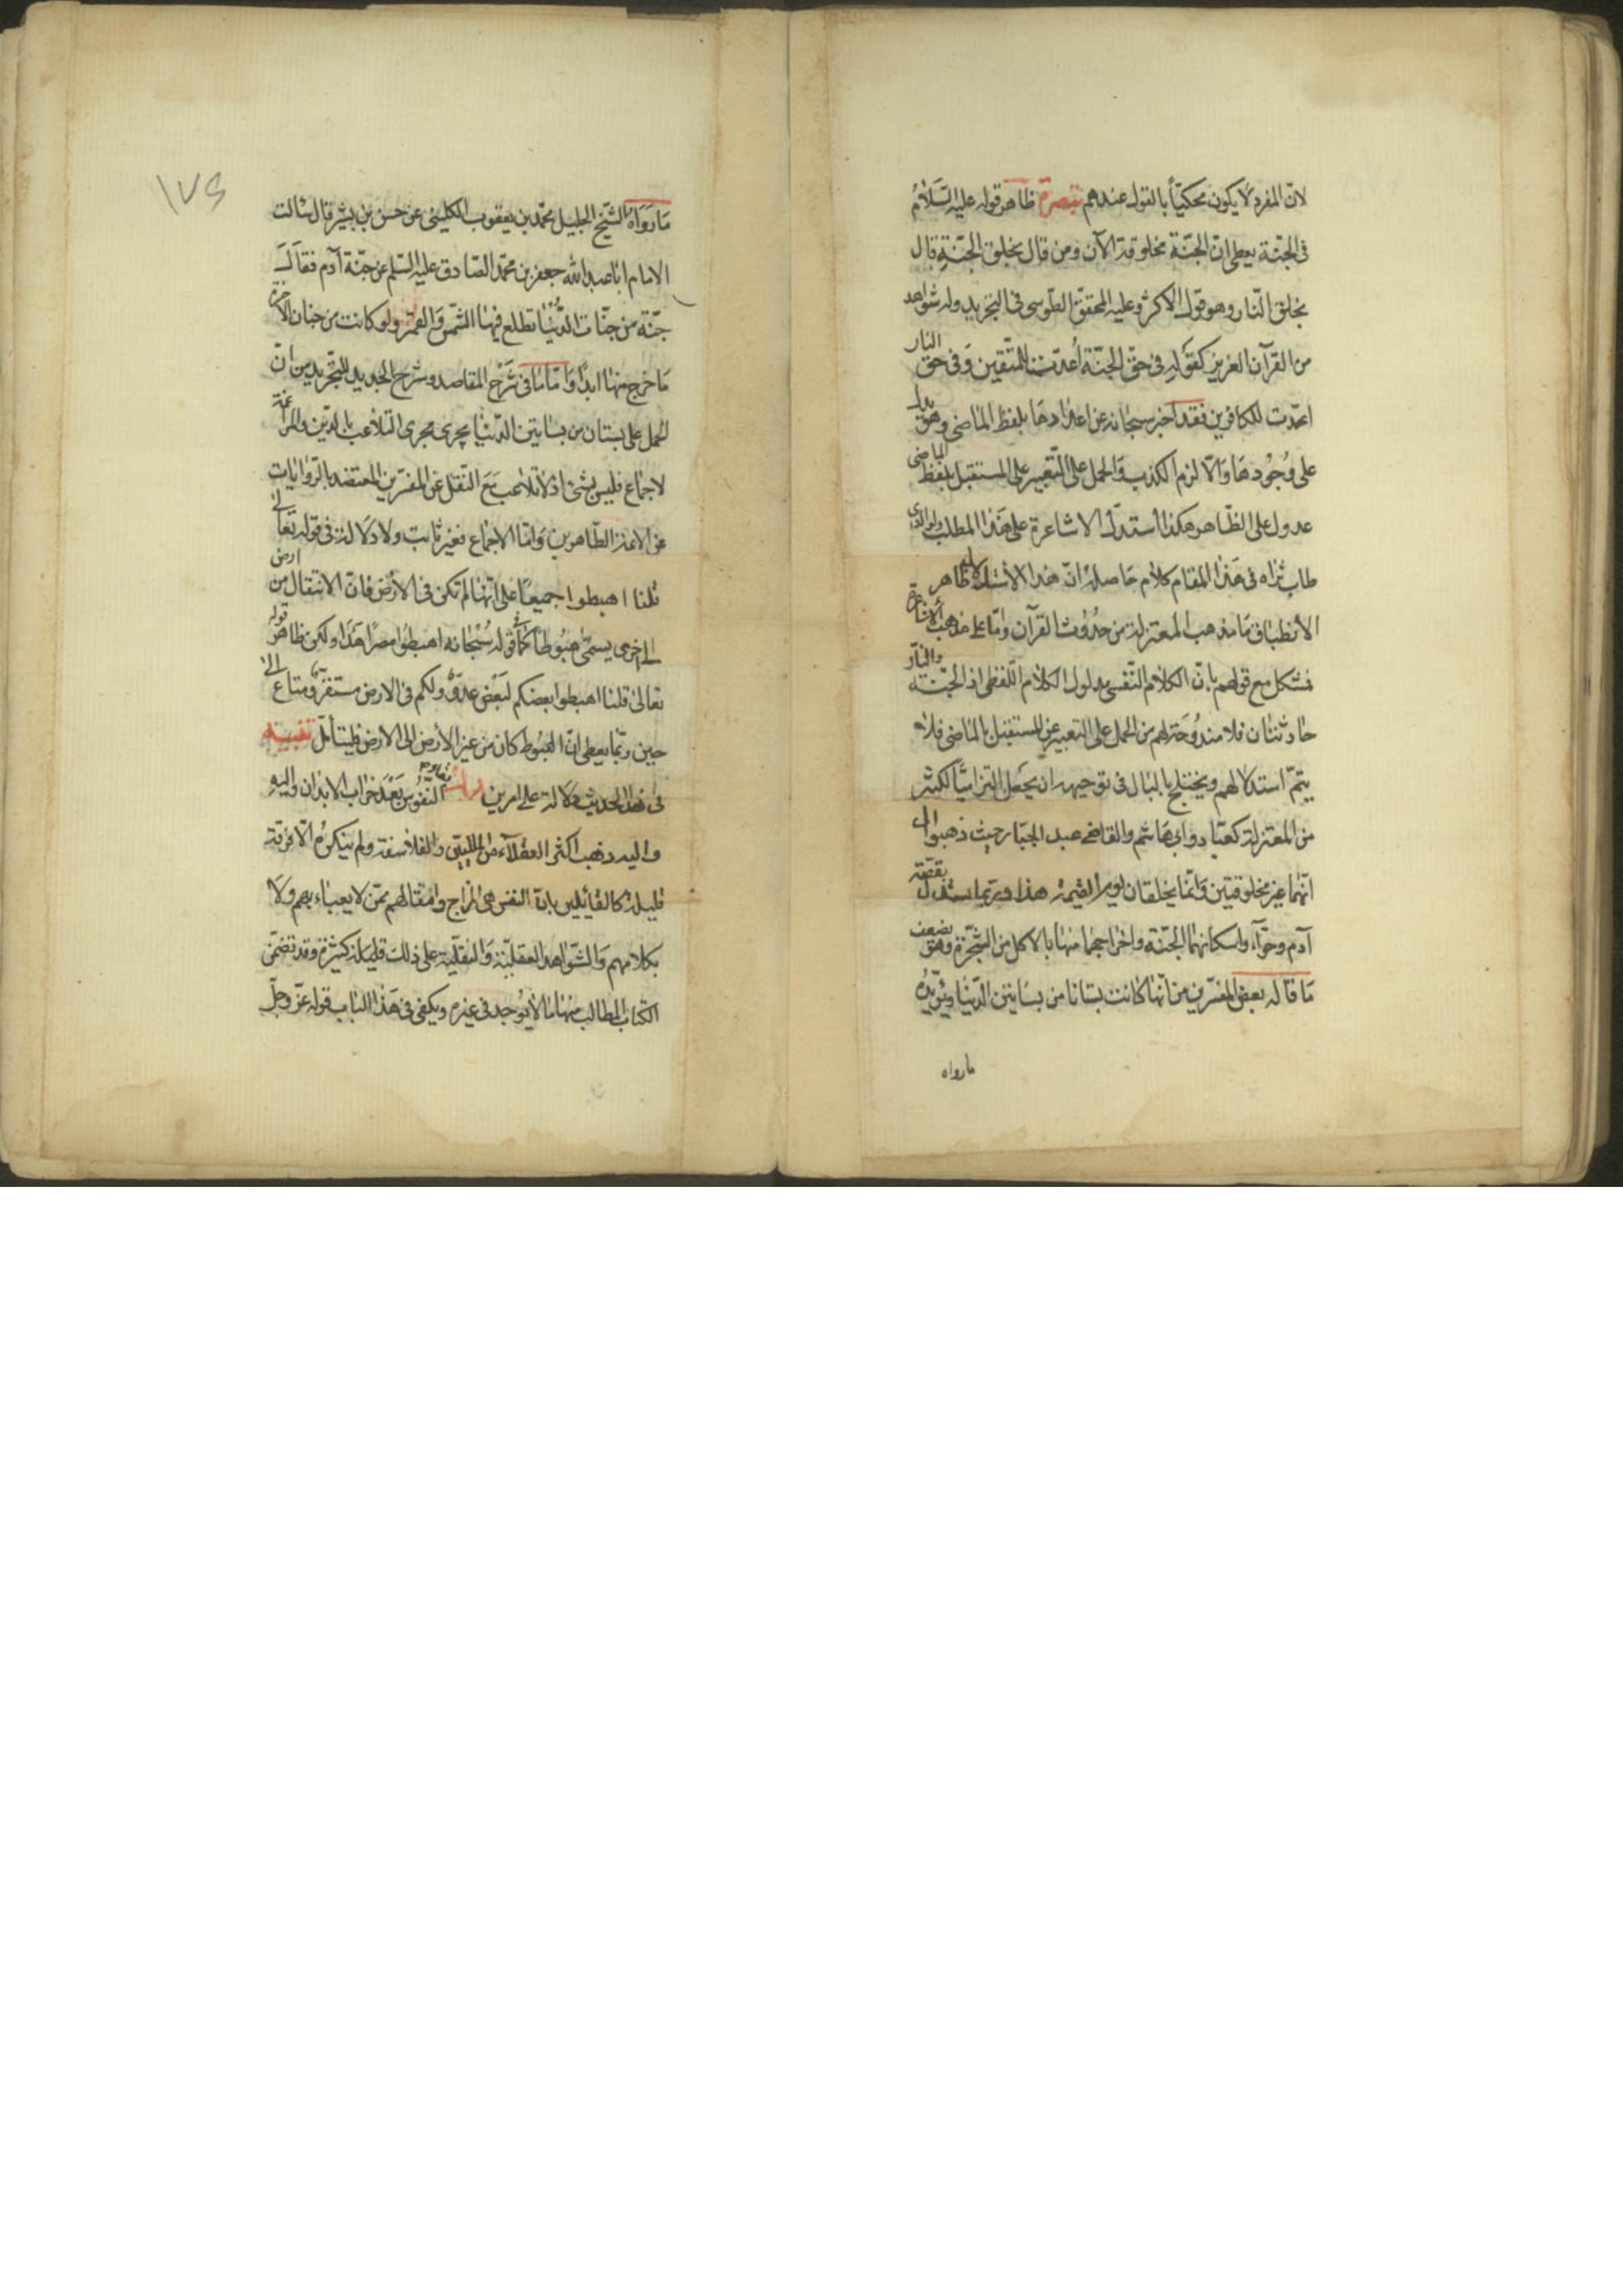 لانّ المفرد لا يكون محكيّاً بالقول عندهم تبصرة ظاهر قوله عليه السّلام
فى الجنّة يعطى انّ الجنّة مخلوقة الآن ومن قال بخلق الجنّة قال
بخلق النّار وهو قول الاكثر وعليه المحقّق الطّوسى فى التجريد وله شواهد
من القرآن العزيز كقوله فى حقّ الجنّة أعدّت للمتّقين وفى حق النار
اعدّت للكافرين فقد اخبر سبحانه عن اعدادها بلفظ الماضى وهو يدل
على وجودها والّا لزم الكذب والحمل على التّعبير على المستقبل بلفظ الماضى
عدول على الظّاهر هكذا استدلّ الاشاعرة على هذا المطلب ولوالدى
طاب ثراه فى هذا المقام كلام حاصله انّ هذا الاستدلال ظاهر
الأنطباق ما مذهب المعتزلة من حدوث القرآن وامّا على مذهب الأشاعرة
فمشكل مع قولهم بانّ الكلام النّفسى مدلول الكلام اللّفظى اذ الجنّة والنّار
حادثتان فلا مندوحة لهم من الحمل على التعبير عن المستقبل بالماضى فلا
يتمّ استدلالهم ويختلج بالبال فى توجيهه ان يجعل الزاميّاً لكثير
من المعتزلة كعبّاد وابى هاشم والقاضى عبد الجبّار حيث ذهبوا الى
انّهما غير مخلوقتين وانّما يخلقان يوم القيمة هذا وربّما يستدلّ بقصّة
آدم وحوّاء واسكانهما الجنّة واخراجهما منها بالاكل من الشّجرة وهو يضعف
ما قاله بعض المفسّرين من انّها كانت بستانا من بساتين الدّنيا ويؤيّده
مارواه
١٧٤
ما رواه الشّيخ الجليل محمّد بن يعقوب الكلينى عن حسن بن بشير قال سالت
الامام ابا عبد الله جعفر بن محمّد الصّادق عليه السّلم عن جنّة آدم فقال
جنّة من جنّات الدّنيا تطلع فيها الشّمس والقمر ولو كانت من جنان الآخرة
ما خرج منها ابداً وامّا ما فى شرح المقاصد وشرح الجديد للتّجريد من انّ
الحمل على بستان من بساتين الدّنيا يجرى مجرى التلاعب بالدّين والمراغمة
لاجماع فليس بشئ اذ لا تلاعب مع النّقل عن المفسّرين المعتضد بالرّوايات
عن الائمة الطّاهرين وامّا الاجماع فغير ثابت ولا دلالة فى قوله تعالى
قلنا اهبطوا جميعاً على انّها لم تكن فى الأرض فانّ الانتقال من ارض
الى اخرى يسمّى هبوطاً كما فى قوله سبحانه اهبطوا مصرًا هذا ولكن ظاهر قوله
تعالى قلنا اهبطوا بعضكم لبعض عدوّ ولكم فى الارض مستقرّ ومتاع الى
حين ربّما يعطى انّ الهبوط كان من غير الأرض الى الارض فليتأمّل تنبيه
فى هذا الحديث دلالة على امرين بقاء النّفوس بعد خراب الابدان واليه
واليه ذهب اكثر العقلاء من الملّيين والفلاسفة ولم ينكره الّا فرقة
قليلة كالقائلين بانّ النفس هى المزاج وامثالهم ممّن لا يعباء بهم ولا
بكلامهم والشّواهد العقليّة والنقليّة على ذلك كثيرة وقد تضمّن
الكتاب المطالب منها ما لا يوجد فى غيره ويكفى فى هذا الباب قوله عزّ وجلّ